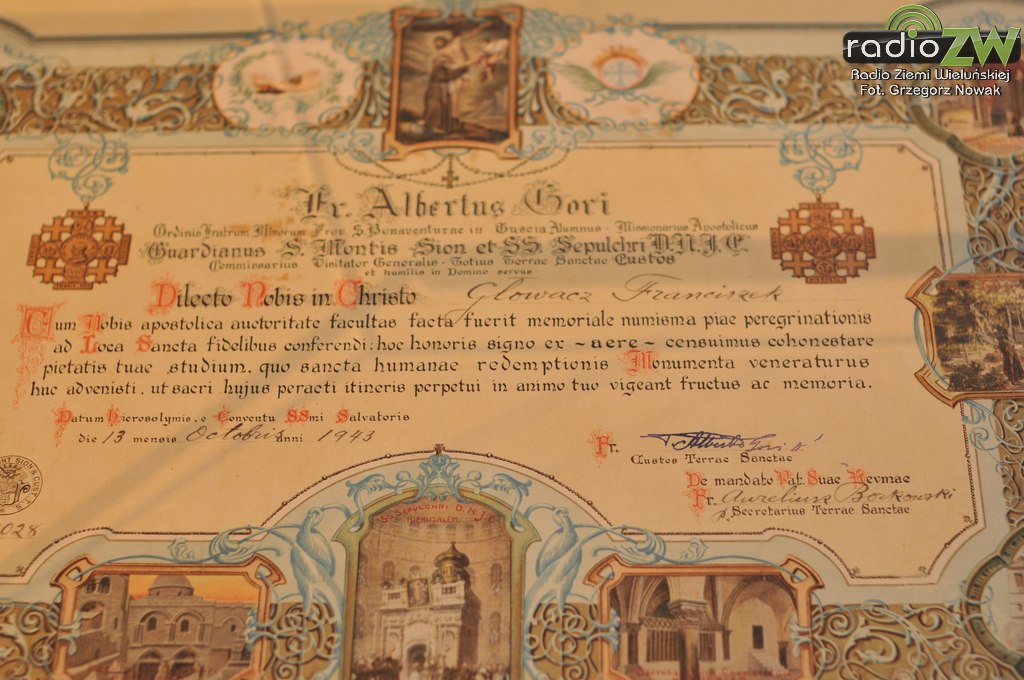 radioZW
Radio Ziemi Wieluńskiej
Fot. Grzegorz Nowak
Fr. Albertus Gori
Ordinis Fratrum Minorum Prov. S. Bonaventurae in Tuscia Alumnus - Missionarius Apostolicus
Guardianus S. Montis Sion et SS. Sepulchri D.N.J.C.
Commissarius Visitator Generalis - Totius Terrae Sanctae Custos
et humilis in Domino servus
Dilecto Nobis in Christo Glowacz Franciszek
Cum Nobis apostolica auctoritate facultas facta fuerit memoriale numisma piae peregrinationis
ad Loca Sancta fidelibus conferendi: hoc honoris signo ex - aere - censuimus cohonestare
pietatis tuae studium, quo sancta humanae redemptionis Monumenta veneraturus
huc advenisti, ut sacri hujus peracti itineris perpetui in animo tuo vigeant fructus ac memoria.
Datum Hierosolymis, e Conventu SSmi Salvatoris
die 13 mensis Octobris anni 1943
Fr. Albertus Gori
Custos Terrae Sanctae
De mandato Pat. Suae Revmae
Fr. Aurelius Borkowski
Secretarius Terrae Sanctae
028
SS. SEPULCHRI D.N.J.C.
JERUSALEM